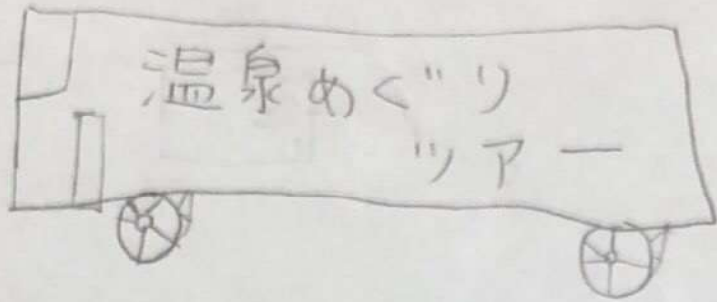 温泉めぐり
ツアー